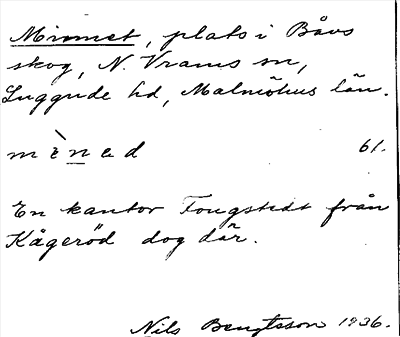 Minnet, plats i Båvs
skog, N. Vrams sn,
Luggude hd, Malmöhus län.
mènad 61.
En kantor Tongstedt från
Kågeröd dog där.
Nils Bengtsson 1936.